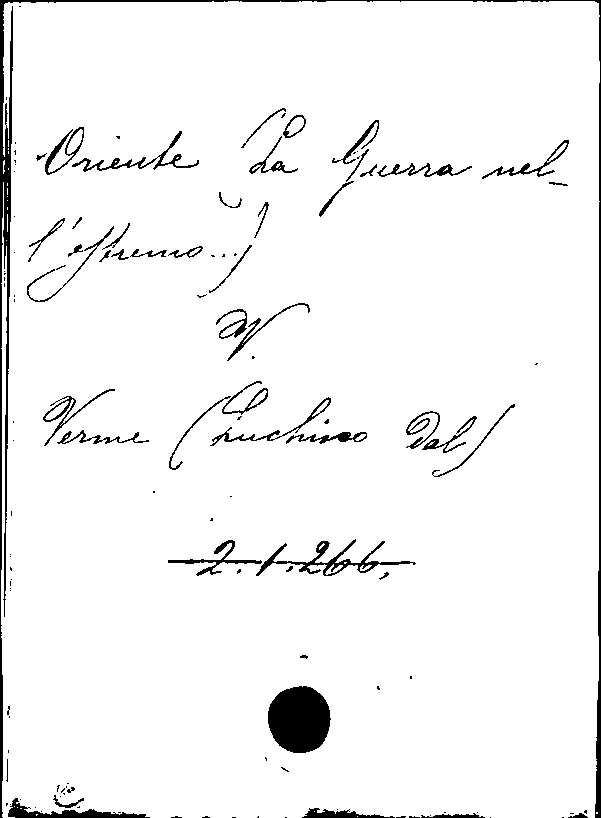 Oriente (La Guerra nel-
l'estremo...)
V.
Verme (Luchino Dal)
2.1.266.